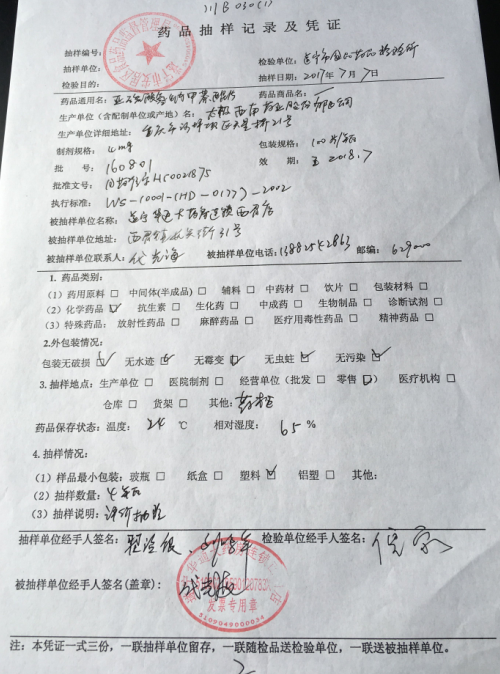 川B030(1)
药品抽样记录及凭证
抽样编号:
抽样单位: 检验单位: 遂宁市食品药品检验所
检验目的: 抽样日期: 2017年7月7日
药品通用名: 药品商品名:
生产单位（含配制单位或产地）名: 太极西南药业股份有限公司
生产单位详细地址: 重庆市沙坪坝区天星桥21号
制剂规格: 4mg 包装规格: 100片/瓶
批 号: 160801 效 期: 至2018.7
批准文号: 国药准字H50021875
执行标准: WS-10001-(HD-0177)-2002
被抽样单位名称: 遂宁
被抽样单位地址: 西眉镇 街31号
被抽样单位联系人: 被抽样单位电话: 邮编: 629000
1. 药品类别:
（1）药用原料 □ 中间体(半成品) □ 辅料 □ 中药材 □ 饮片 □ 包装材料 □
（2）化学药品 ☑ 抗生素 □ 生化药 □ 中成药 □ 生物制品 □ 诊断试剂 □
（3）特殊药品: 放射性药品 □ 麻醉药品 □ 医疗用毒性药品 □ 精神药品 □
2.外包装情况:
包装无破损 ☑ 无水迹 ☑ 无霉变 ☑ 无虫蛀 ☑ 无污染 ☑
3. 抽样地点: 生产单位 □ 医院制剂 □ 经营单位（批发 □ 零售 ☑） 医疗机构 □
仓库 □ 货架 □ 其他: 药柜
药品保存状态: 温度: 24 ℃ 相对湿度: 65 %
4. 抽样情况:
（1）样品最小包装: 玻瓶 □ 纸盒 □ 塑料 ☑ 铝塑 □ 其他:
（2）抽样数量: 4瓶
（3）抽样说明: 评价抽验
抽样单位经手人签名: 检验单位经手人签名:
被抽样单位经手人签名(盖章):
发票专用章
5109049000034
注: 本凭证一式三份，一联抽样单位留存，一联随检品送检验单位，一联送被抽样单位。